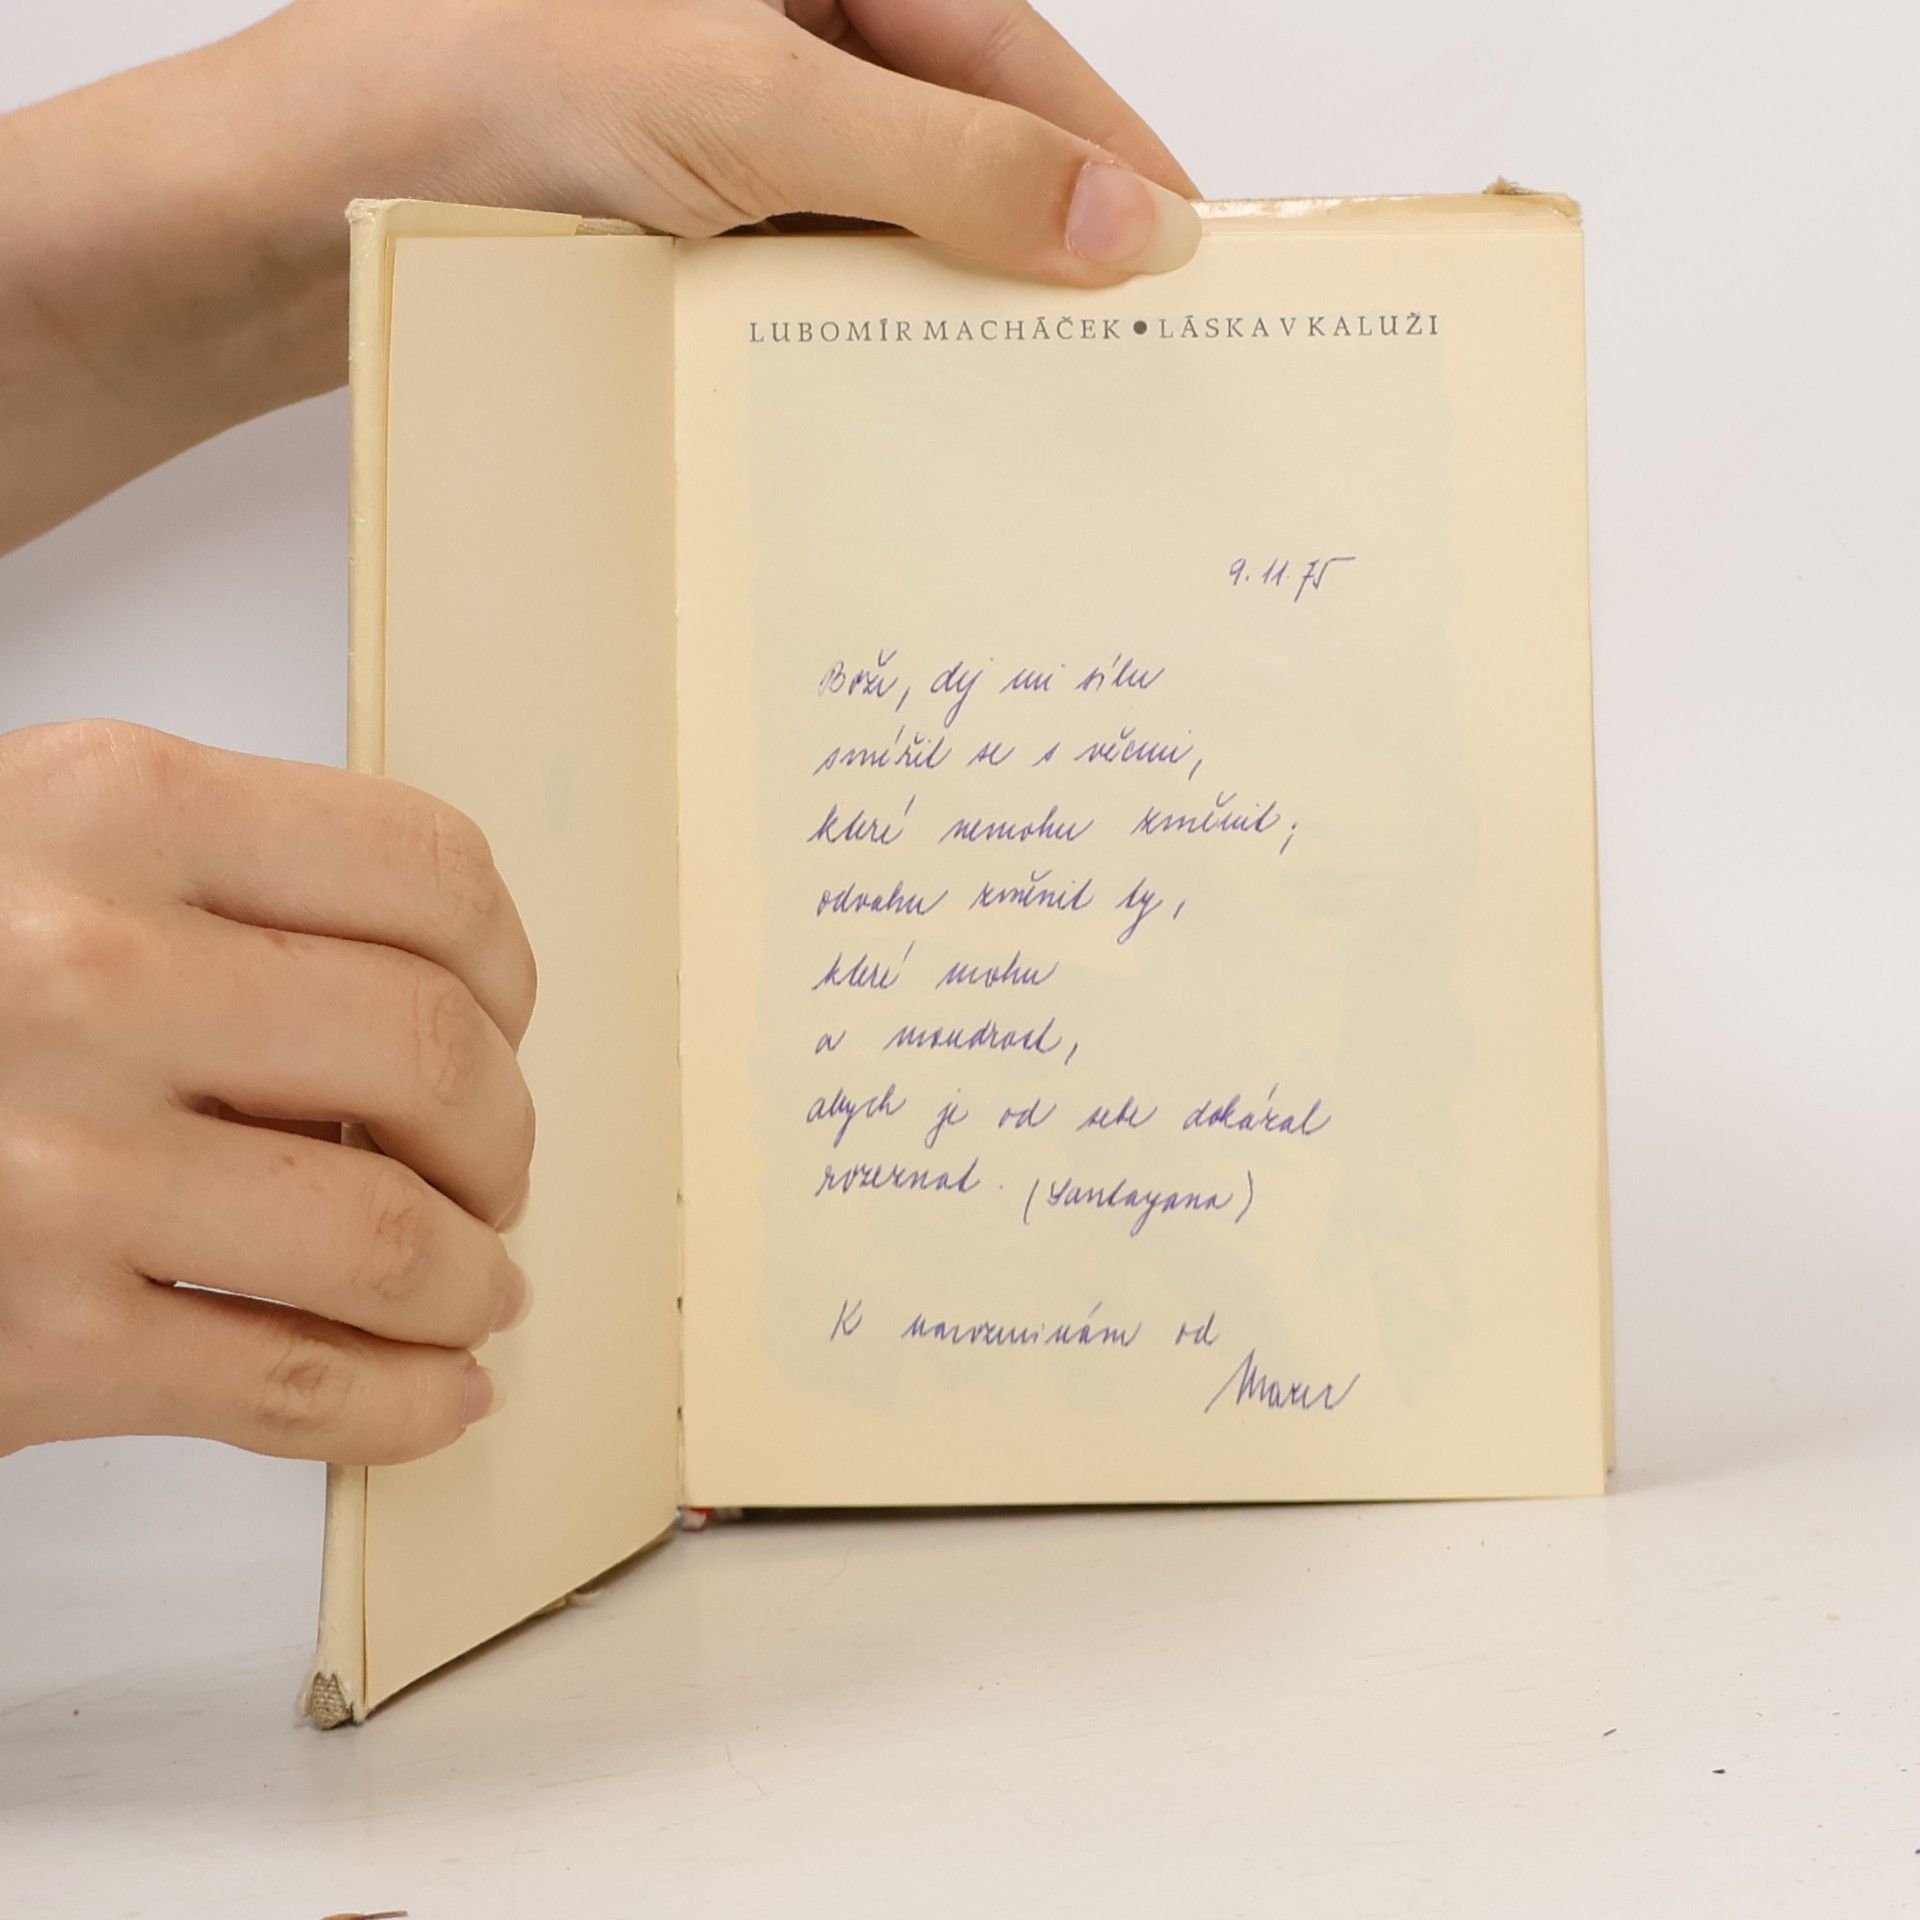 LUBOMÍR MACHÁČEK ● LÁSKA V KALUŽI
9. 11. 75
Bože, dej mi sílu
smířit se s věcmi,
které nemohu změnit;
odvahu změnit ty,
které mohu
a moudrost,
abych je od sebe dokázal
rozeznat. (Santayana)
K narozeninám od